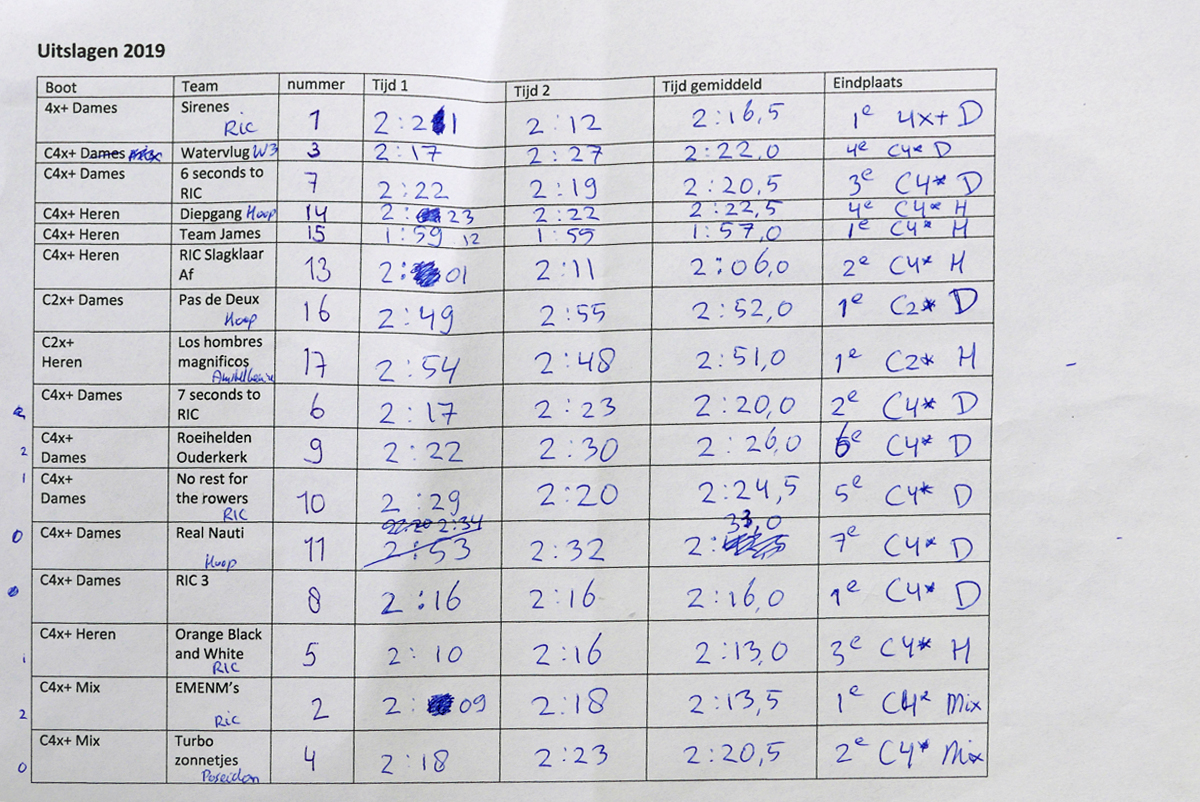 Uitslagen 2019
Boot Team nummer Tijd 1 Tijd 2 Tijd gemiddeld Eindplaats
4x+ Dames Sirenes Ric 1 2:21 2:12 2:16,5 1e 4x+ D
C4x+ Dames Watervlug W3 3 2:17 2:27 2:22,0 4e C4* D
C4x+ Dames 6 seconds to RIC 7 2:22 2:19 2:20,5 3e C4* D
C4x+ Heren Diepgang Hoop 14 2:23 2:22 2:22,5 4e C4* H
C4x+ Heren Team James 15 1:59 12 1:55 1:57,0 1e C4* H
C4x+ Heren RIC Slagklaar Af 13 2:01 2:11 2:06,0 2e C4* H
C2x+ Dames Pas de Deux Hoop 16 2:49 2:55 2:52,0 1e C2* D
C2x+ Heren Los hombres magnificos 17 2:54 2:48 2:51,0 1e C2* H
C4x+ Dames 7 seconds to RIC 6 2:17 2:23 2:20,0 2e C4* D
2 C4x+ Dames Roeihelden Ouderkerk 9 2:22 2:30 2:26,0 6e C4* D
1 C4x+ Dames No rest for the rowers RIC 10 2:29 2:20 2:24,5 5e C4* D
0 C4x+ Dames Real Nauti Hoop 11 2:34 2:53 2:32 2:33,0 7e C4* D
C4x+ Dames RIC 3 8 2:16 2:16 2:16,0 1e C4* D
1 C4x+ Heren Orange Black and White RIC 5 2:10 2:16 2:13,0 3e C4* H
2 C4x+ Mix EMENM's Ric 2 2:09 2:18 2:13,5 1e C4* Mix
0 C4x+ Mix Turbo zonnetjes Poseidon 4 2:18 2:23 2:20,5 2e C4* Mix